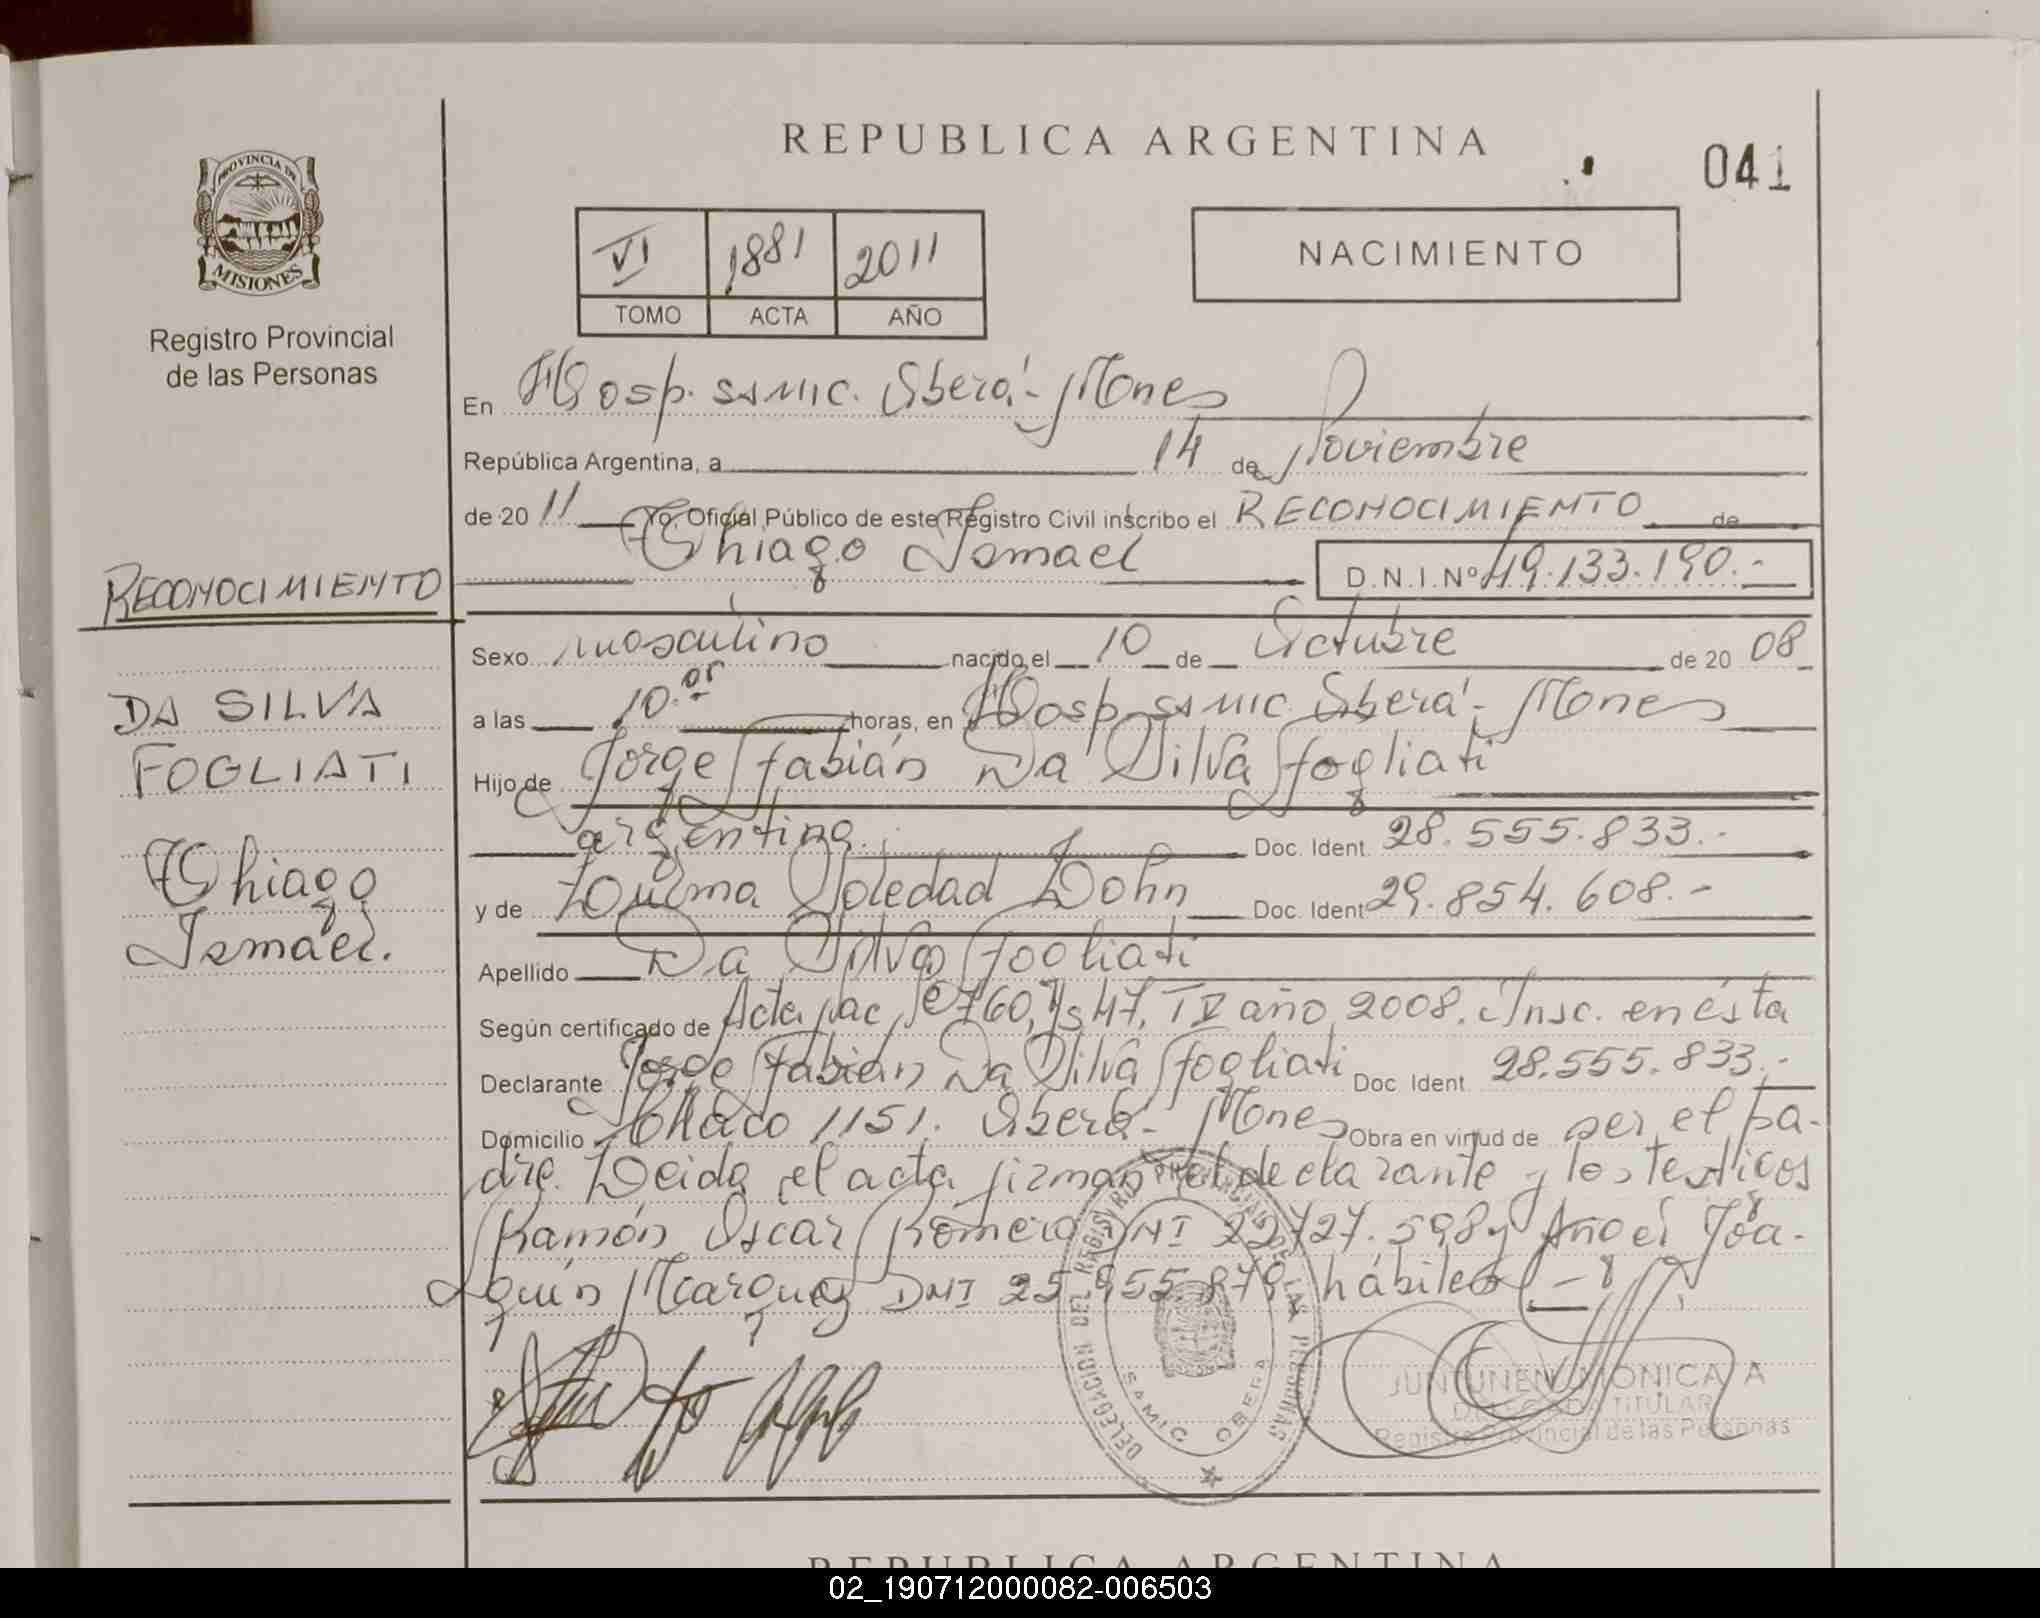 REPUBLICA ARGENTINA
041
PROVINCIA DE
MISIONES
Registro Provincial
de las Personas
VI 1881 2011
TOMO ACTA AÑO
NACIMIENTO
En Hosp. SAMIC. Oberá - Mones
República Argentina, a 14 de Noviembre
de 2011 Yo, Oficial Público de este Registro Civil inscribo el RECONOCIMIENTO de
Thiago Ismael D.N.I.Nº 49.133.190.-
RECONOCIMIENTO
DA SILVA
FOGLIATI
Thiago
Ismael.
Sexo masculino nacido el 10 de Octubre de 2008
a las 10.05 horas, en Hosp. SAMIC. Oberá - Mones
Hijo de Jorge Fabián Da Silva Fogliati
argentina. Doc. Ident. 28.555.833.-
y de Zulma Soledad Dohn Doc. Ident 29.854.608.-
Apellido Da Silva Fogliati
Según certificado de Acta Nac. Nº 760, Fs 47, T V año 2008. Insc. en ésta
Declarante Jorge Fabián Da Silva Fogliati Doc Ident 28.555.833.-
Domicilio Chaco 1151. Oberá - Mones Obra en virtud de ser el pa-
dre. Leida el acta firman el declarante y los testigos
Ramón Oscar Romero DNI 22.727.598 y Joa-
quín Marquez DNI 25 955.879 hábiles -
DELEGACION DEL REGISTRO PROVINCIAL DE LAS PERSONAS
SAMIC OBERA
JUNTUNEN MONICA A
DELEGADA TITULAR
Registro Provincial de las Personas
REPUBLICA ARGENTINA
02_190712000082-006503